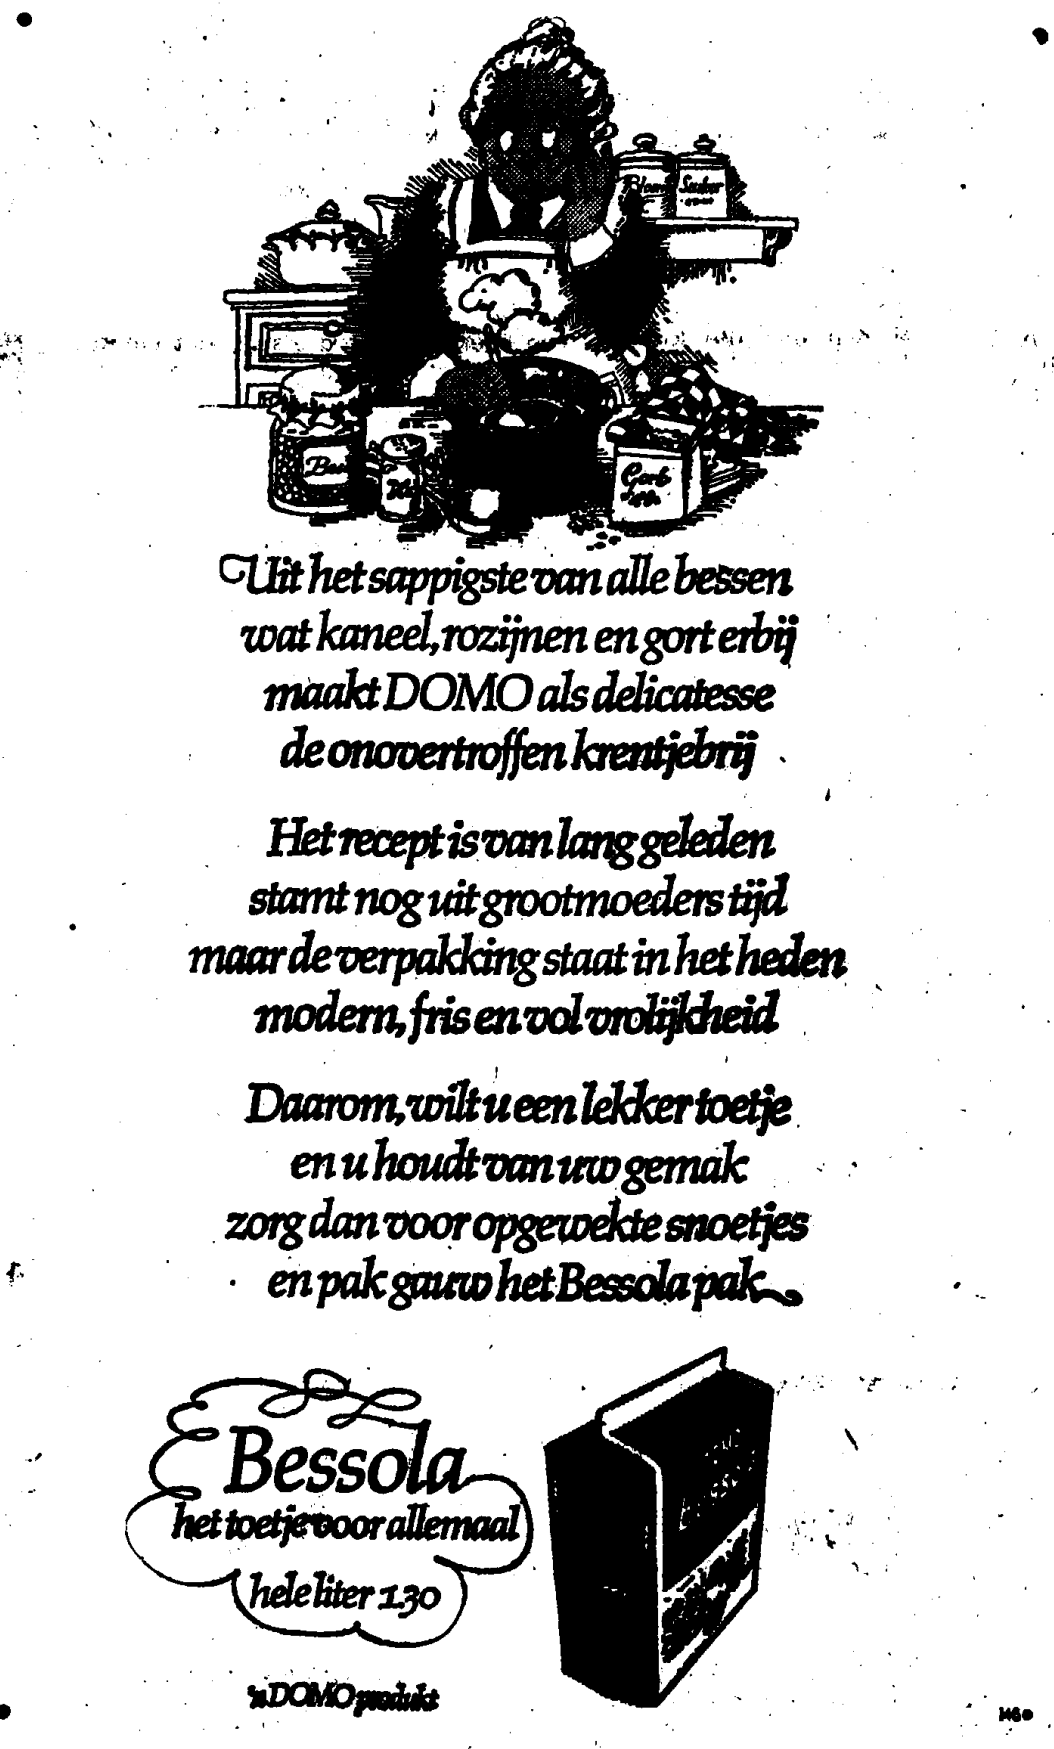 Suiker
Gort
Uit het sappigste van alle bessen
wat kaneel, rozijnen en gort erbij
maakt DOMO als delicatesse
de onovertroffen krentjebrij
Het recept is van lang geleden
stamt nog uit grootmoeders tijd
maar de verpakking staat in het heden
modern, fris en vol vrolijkheid
Daarom, wilt u een lekker toetje
en u houdt van uw gemak
zorg dan voor opgewekte snoetjes
en pak gauw het Bessola pak
Bessola
het toetje voor allemaal
hele liter 1.30
'n DOMO produkt